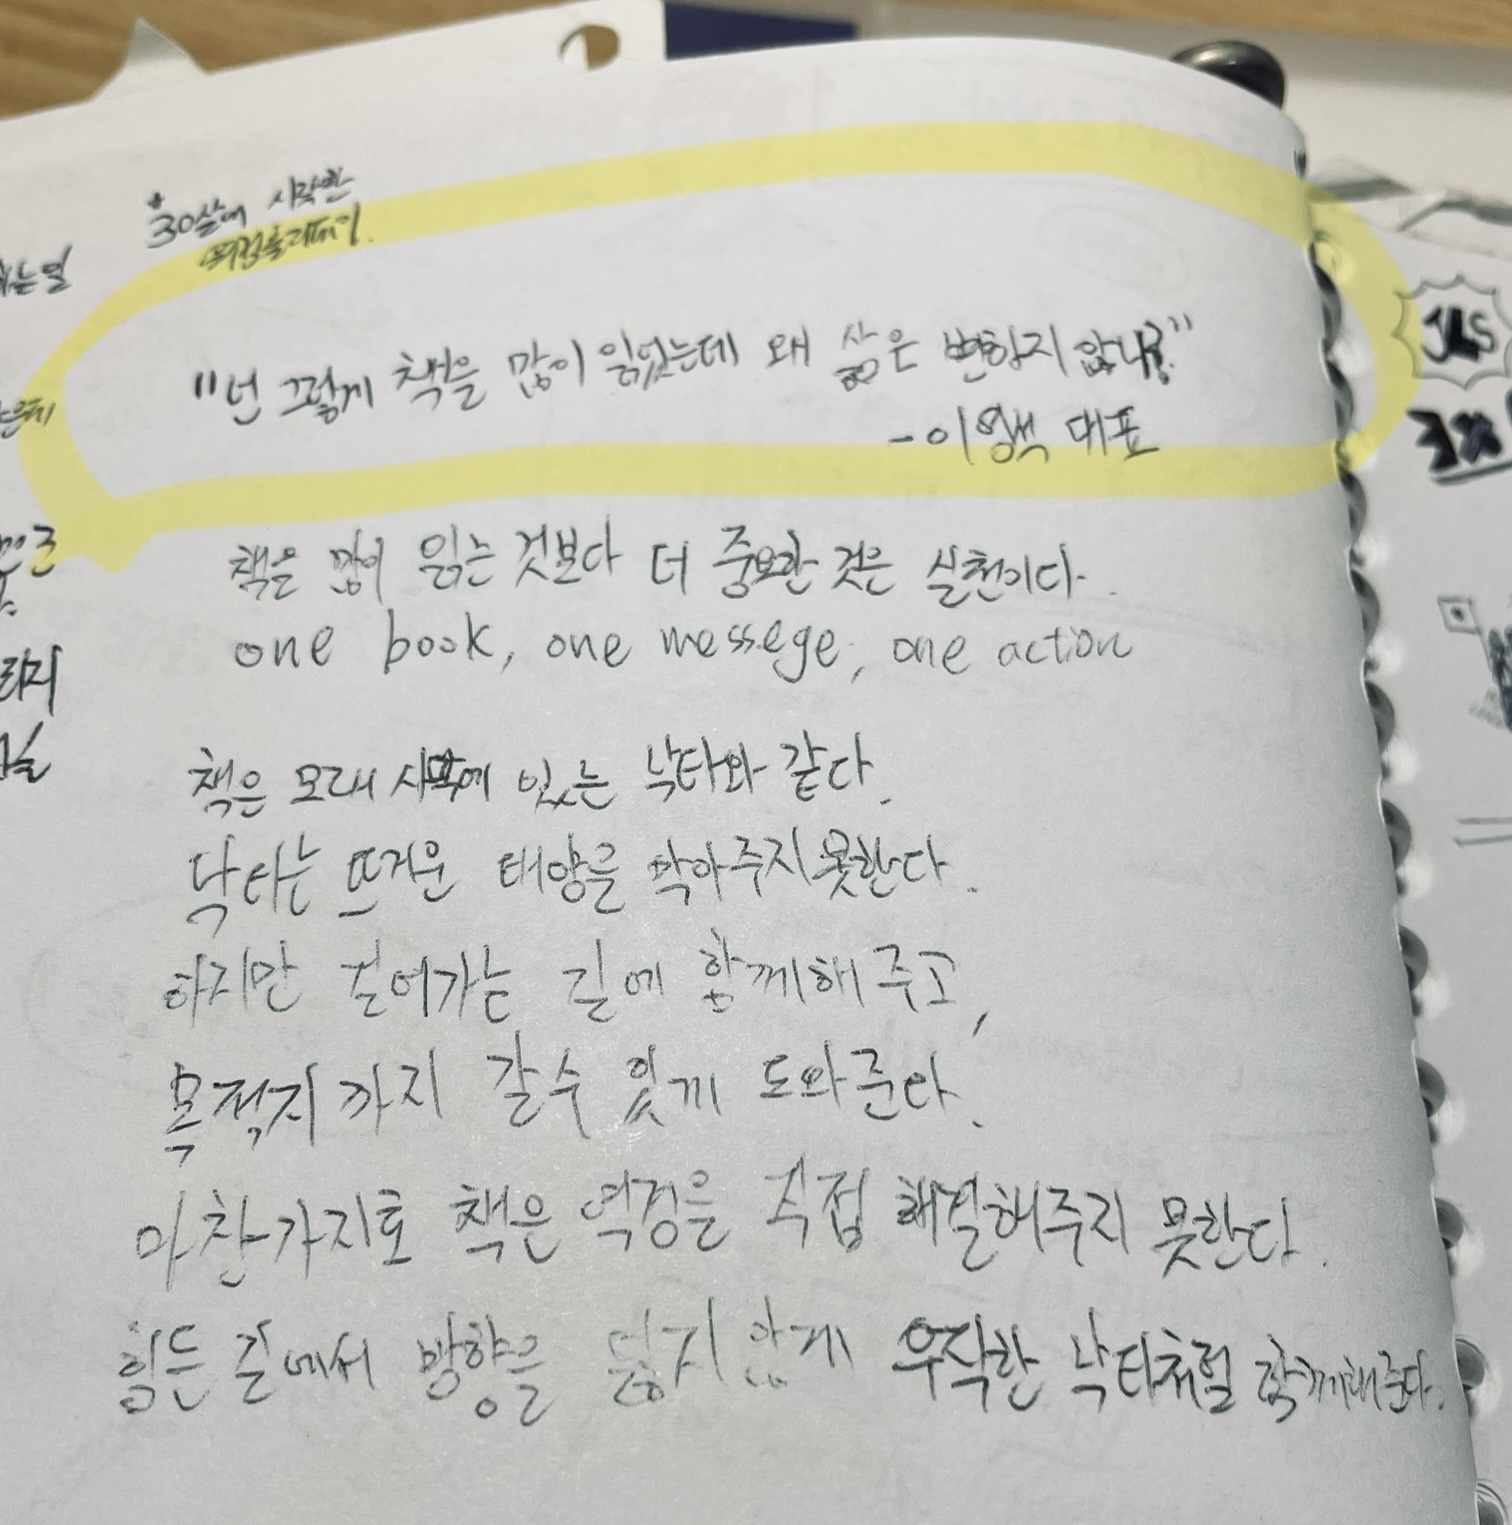 *30살에 시작한
"넌 그렇게 책을 많이 읽었는데 왜 삶은 변하지 않니?"
- 이영백 대표
책을 많이 읽는 것보다 더 중요한 것은 실천이다.
one book, one messege, one action
책은 모래 사막에 있는 낙타와 같다.
낙타는 뜨거운 태양을 막아주지 못한다.
하지만 걸어가는 길에 함께해 주고,
목적지 까지 갈수 있게 도와준다.
마찬가지로 책은 역경을 직접 해결해주지 못한다.
힘든 길에서 방향을 잃지 않게 우직한 낙타처럼 함께해준다.
하는일
JLS